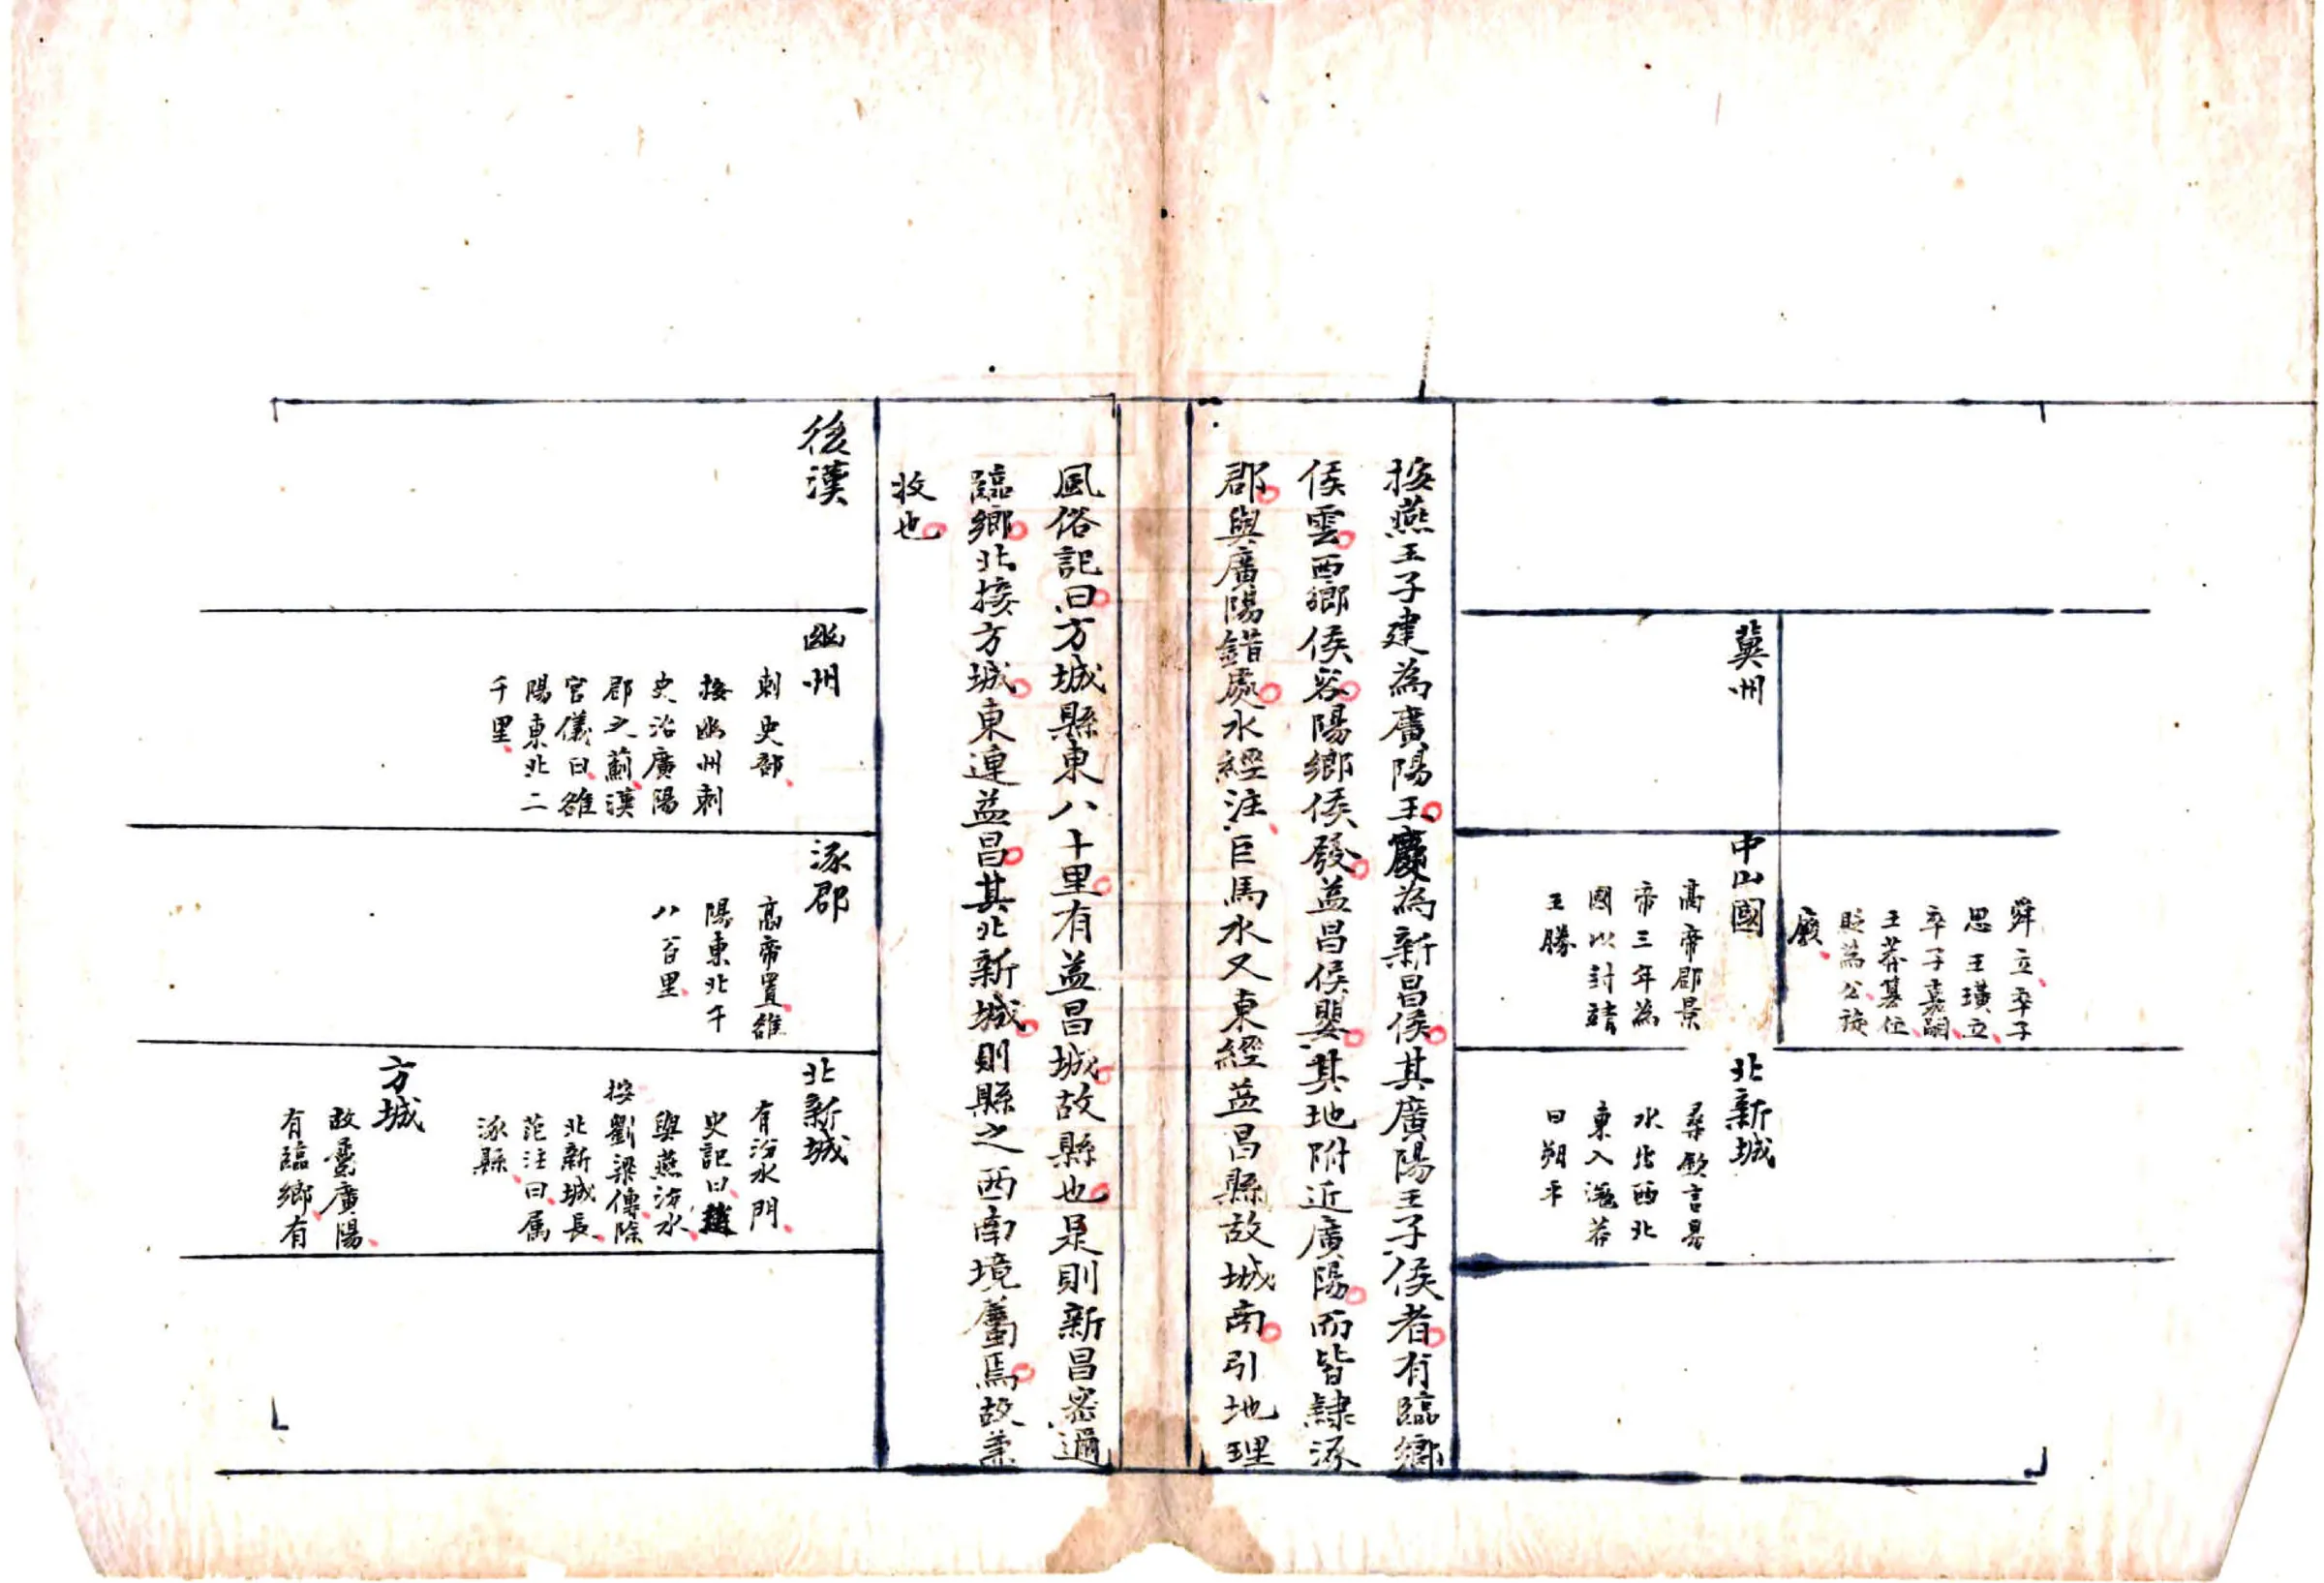 舜立卒子
思王璜立
卒子嘉嗣
王莽篡位
貶為公後
廢
冀州
中山國
高帝郡景
帝三年為
國以封靖
王勝
北新城
桑欽言易
水出西北
東入滱莽
曰朔平
按燕王子建為廣陽王慶為新昌侯其廣陽王子侯者有臨鄉
侯雲西鄉侯容陽鄉侯發益昌侯嬰其地附近廣陽而皆隸涿
郡與廣陽錯處水經注巨馬水又東經益昌縣故城南引地理
風俗記曰方城縣東八十里有益昌城故縣也是則新昌密邇
臨鄉北接方城東連益昌其北新城則縣之西南境舊焉故兼
收也
後漢
幽州
刺史部
按幽州刺
史治廣陽
郡之薊漢
官儀曰雒
陽東北二
千里
涿郡
高帝置雒
陽東北千
八百里
北新城
有汾水門
史記曰趙
與燕汾水
按劉梁傳除
北新城長
范注曰属
涿縣
方城
故屬廣陽
有臨鄉有